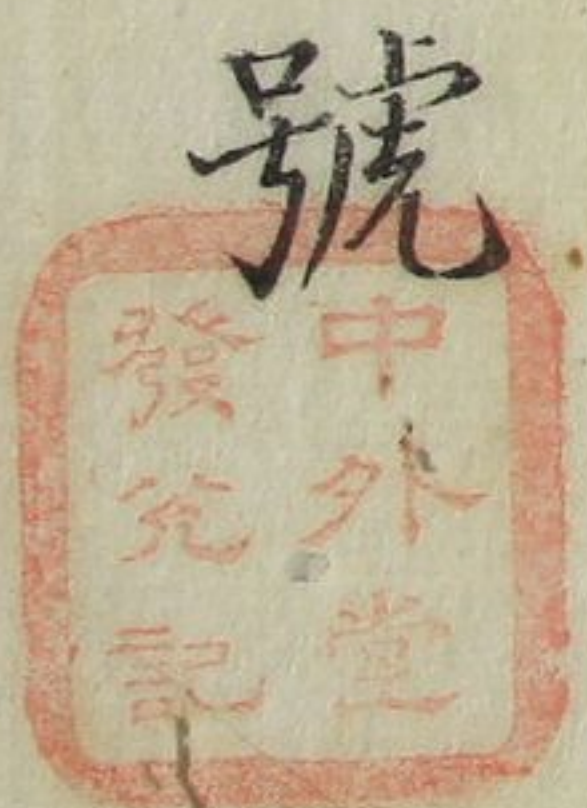 號
中外堂
發兌記